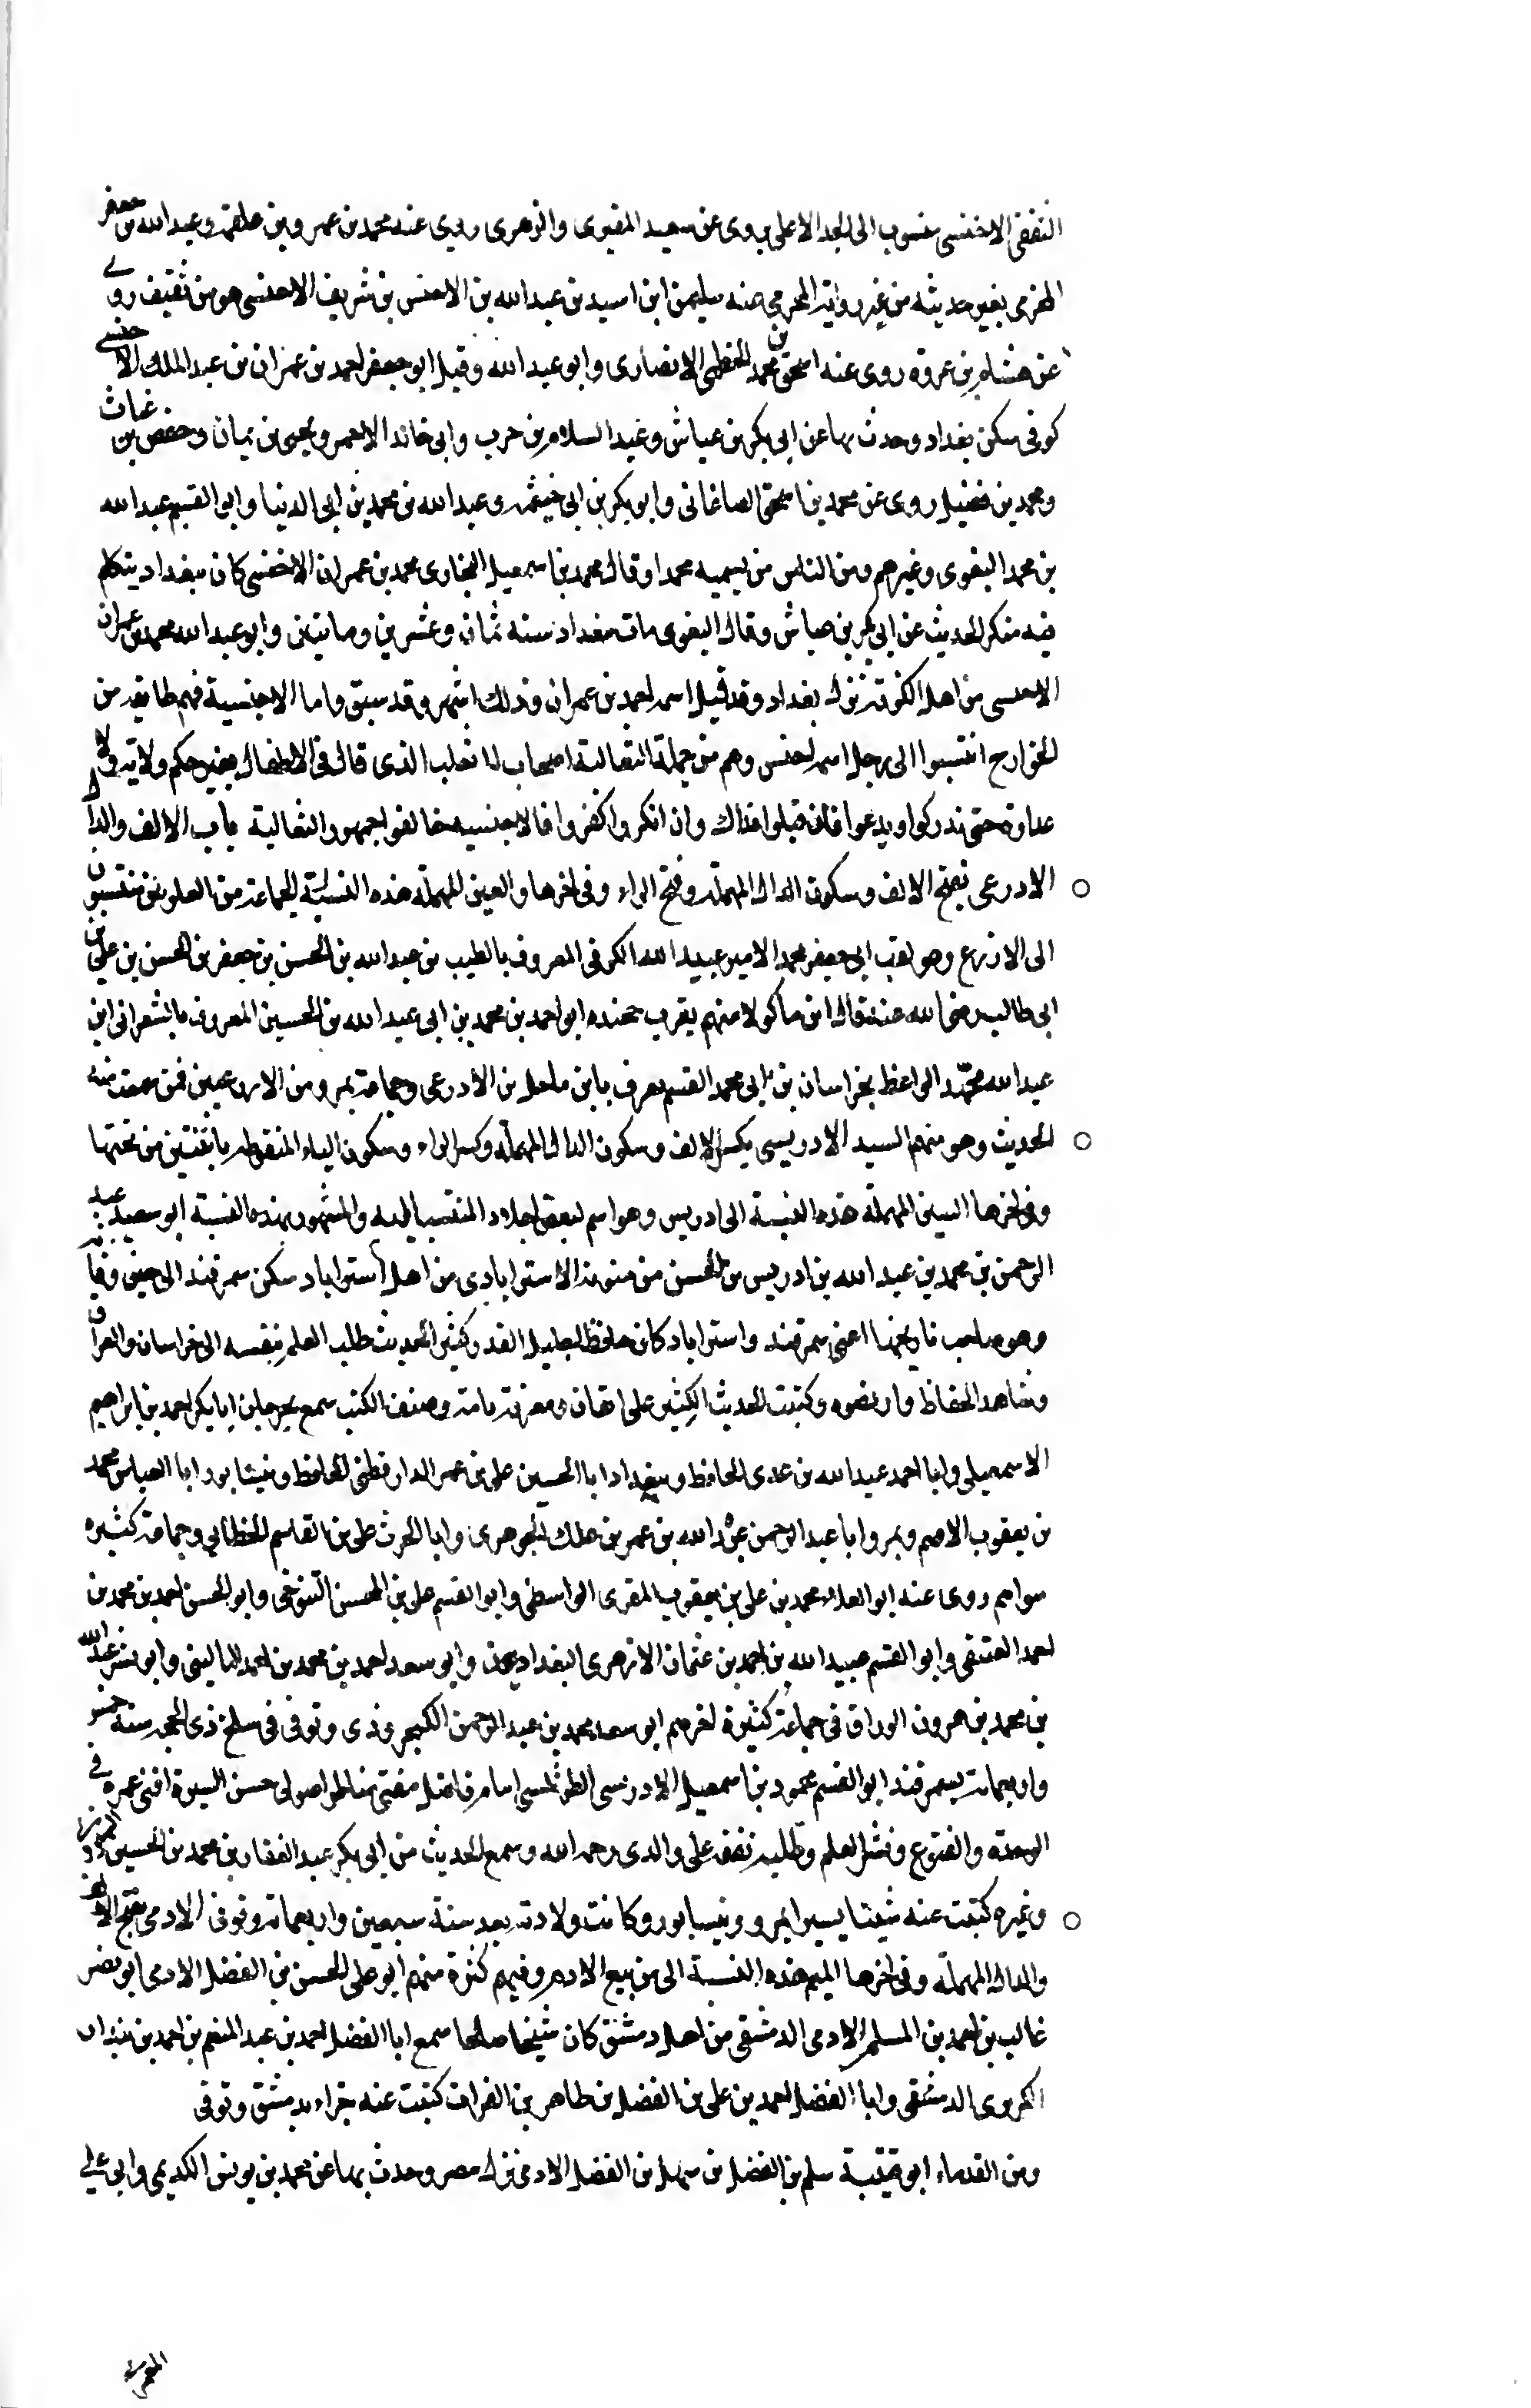 الثقفى الاخنسى منسوب الى الجد الاعلى يروى عن سعيد المقبرى والزهرى روى عنه محمد بن عمرو بن علقمة وعبد الله بن جعفر
المخرمى بغير حديثه من غير رواية المخرمى عنه سليمن ابن اسيد بن عبد الله بن الاخنس بن شريف الاخنسى هو من ثقيف روى
عن هشام بن عروة روى عنه اسحق بن محمد الخطمى الانصارى وابو عبد الله وقيل ابو جعفر احمد بن عمران بن عبد الملك الاخنسى
كوفى سكن بغداد وحدث بها عن ابى بكر بن عياش وعبد السلام بن حرب وابى خالد الاحمر ويحيى بن يمان وحفص بن غياث
ومحمد بن فضيل روى عن محمد بن اسحق الصاغانى وابو بكر بن ابى خيثمة وعبد الله بن محمد بن ابى الدنيا وابو القسم عبد الله
بن محمد البغوى وغيرهم ومن الناس من يسميه محمدا وقال محمد بن اسمعيل البخارى محمد بن عمران الاخنسى كان ببغداد يتكلم
فيه منكر الحديث عن ابى بكر بن عياش وقال البغوى مات ببغداد سنة ثمان وعشرين ومايتين وابو عبد الله محمد بن عمران
الاخنسى من اهل الكوفة نزل بغداد وقد قيل اسمه احمد بن عمران وذلك اشهر وقد سبق واما الاخنسية فهم طايفة من
الخوارج انتسبوا الى رجل اسمه اخنس وهم من جملة الثعالبة اصحاب لا ثعلب الذى قال فى الاطفال بغير حكم ولاية ولا
عداوة حتى يدركوا ويدعوا فان قبلوا فذاك وان انكروا كفروا فالاخنسية خالفوا جمهور الثعالبة باب الالف والدال
الادرعى بفتح الالف وسكون الدال المهملة وفتح الراء وفى اخرها والعين المهملة هذه النسبة لجماعة من العلويين منتسبون
الى الادرع وهو لقب ابى جعفر محمد الامير عبيد الله الكوفى المعروف بالطيب بن عبد الله بن الحسن بن جعفر بن الحسن بن على بن
ابى طالب رضى الله عنه قال ابن ماكولا منهم بقرب خجنده ابو احمد بن محمد بن ابى عبد الله بن الحسين المعروف بالشعرانى ابن
عبد الله محمد الواعظ بخراسان بن ابى محمد القسم يعرف بابن ماحل بن الادرعى وجماعة بمرو من الادرعيين فمن سمعت منه
الحديث وهو منهم السيد الادريسى بكسر الالف وسكون الدال المهملة وكسر الراء وسكون الياء المنقوطة باثنتين من تحتها
وفى اخرها السين المهملة هذه النسبة الى ادريس وهو اسم لبعض اجداد المنتسب اليه والمشهور بهذه النسبة ابو سعيد عبد
الرحمن بن محمد بن عبد الله بن ادريس بن الحسن من منويه الاسترابادى من اهل استراباد سكن سمرقند الى حين وفا
وهو صاحب تاريخها اعنى سمرقند واستراباد كان حافظا جليل القدر كثير الحديث طلب العلم بنفسه الى خراسان والعراق
وشاهد الحفاظ وارتضوه وكتبت الحديث الكثير على اتقان ومعرفة تامة وصنف الكتب سمع بجرجان ابا بكر احمد بن ابراهيم
الاسمعيلى وابا احمد عبد الله بن عدى الحافظ وببغداد ابا الحسين على بن عمر الدارقطنى الحافظ وبنيشابور ابا العباس محمد
بن يعقوب الاصم وبمرو ابا عبد الرحمن عبد الله بن عمر بن علك الجوهرى وابا الحرث على بن القاسم الخطابى وجماعة كثيرة
سواهم روى عنه ابو العلاء محمد بن على بن يعقوب المقرى الواسطى وابو القسم على بن المحسن التنوخى وابو الحسن احمد بن محمد بن
احمد العتيقى وابو القسم عبيد الله بن احمد بن عثمان الازهرى البغداديون وابو سعد احمد بن محمد بن احمد المالينى وابو بشر عبد الله
بن محمد بن هرون الوراق فى جماعة كثيرة اخرهم ابو سعد محمد بن عبد الرحمن الكنجروذى وتوفى فى سلخ ذى الحجة سنة خمس
واربعماية بسمرقند ابو القسم محمود بن اسمعيل الادريسى الطرثيثى امام فاضل مفتى مناظر اصولى حسن السيرة افنى عمره فى
الوحدة والقنوع ونشر العلم وطلبه تفقه على والدى رحمه الله وسمع الحديث من ابى بكر عبد الغفار بن محمد بن الحسين
وغيره كتبت عنه شيئا يسيرا بمرو ونيسابور وكانت ولادته بعد سنة سبعين واربعماية وتوفى الادمى بفتح الالف
والدال المهملة وفى اخرها الميم هذه النسبة الى من يبيع الادم وفيهم كثرة منهم ابو على الحسن بن الفضل الادمى ابو نصر
غالب بن احمد بن المسلم الادمى الدمشقى من اهل دمشق كان شيخا صالحا سمع ابا الفضل احمد بن عبد المنعم بن احمد بن بندار
الكروى الدمشقى وابا الفضل احمد بن على بن الفضل بن طاهر بن الفرات كتبت عنه جزاء بدمشق وتوفى
ومن القدماء ابو قتيبة سلم بن الفضل بن سهل بن الفضل الادمى نزل مصر وحدث بها عن محمد بن يونس الكديمى وابى على
المعمرى